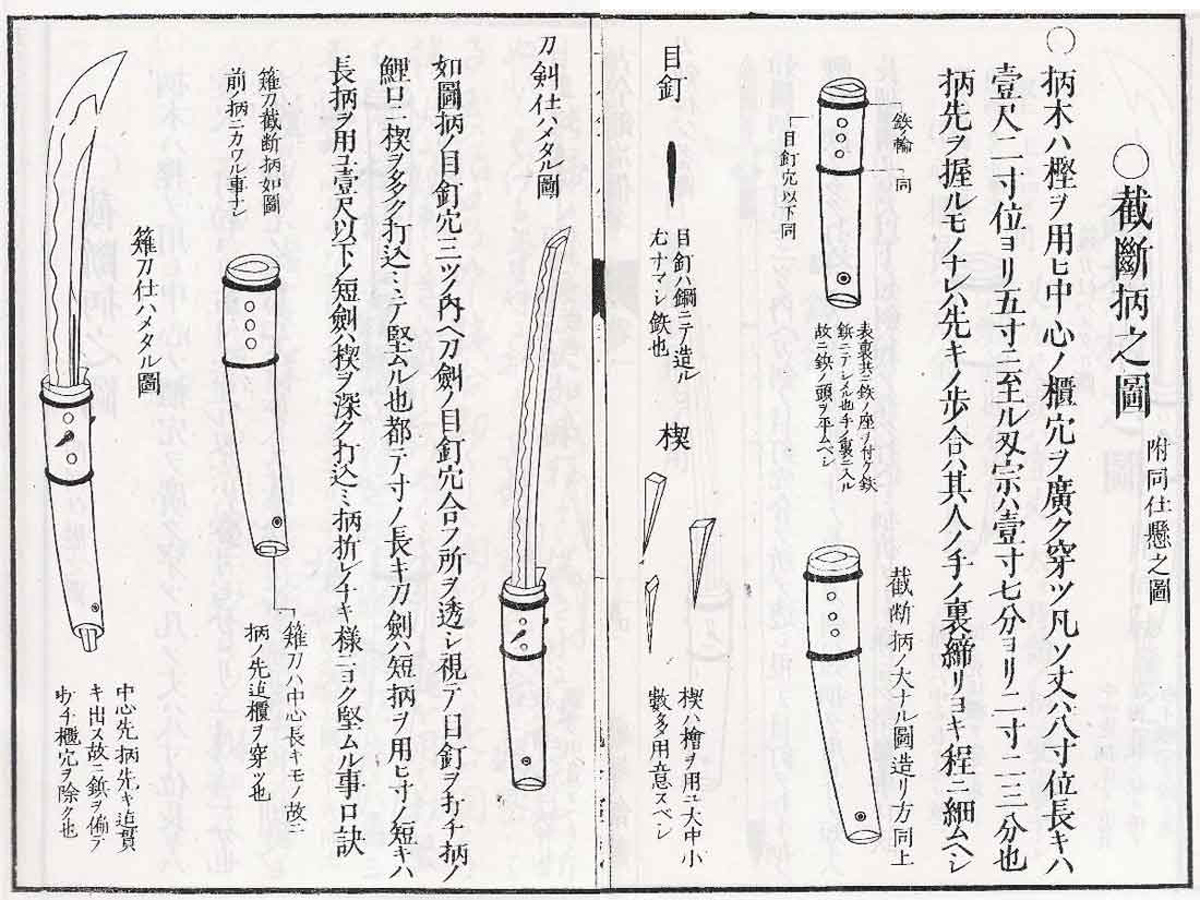 〇截斷柄之圖
附同仕懸之圖
〇柄木ハ樫ヲ用ヒ中心ノ櫃穴ヲ廣ク穿ツ凡ソ丈ハ八寸位長キハ
壹尺二寸位ヨリ五寸ニ至ル刄宗ハ壹寸七分ヨリ二寸二三分也
柄先ヲ握ルモノナレハ先キノ歩合ハ其人ノ手ノ裏締リヨキ程ニ細ムヘシ
鉄ノ輪
同
目釘穴以下同
表裏共ニ鉄ノ座ヲ付ケ鉄
鋲ニテシメル也手ノ裏ニ入ル
故ニ鋲ノ頭ヲ平ムベシ
截断柄ノ大ナル圖造リ方同上
目釘
目釘ハ鋼ニテ造ル
むナマシ鉄也
楔
楔ハ檜ヲ用ユ大中小
數多用意スベシ
刀剣仕ハメタル圖
如圖柄ノ目釘穴三ツノ內ヘ刀劍ノ目釘穴合フ所ヲ透シ視テ目釘ヲ打チ柄ノ
鯉口ニ楔ヲ多ク打込ミテ堅ムル也都テ寸ノ長キ刀劍ハ短柄ヲ用ヒ寸ノ短キハ
長柄ヲ用ユ壹尺以下ノ短劍ハ楔ヲ深ク打込ミ柄折レナキ様ニヨク堅ムル事口訣
薙刀截断柄如圖
前ノ柄ニカワル事ナシ
薙刀ハ中心長キモノ故ニ
柄ノ先迠櫃ヲ穿ツ也
薙刀仕ハメタル圖
中心先柄先キ迠貫
キ出ス故ニ鋲ヲ偏テ
ウチ櫃穴ヲ除ク也